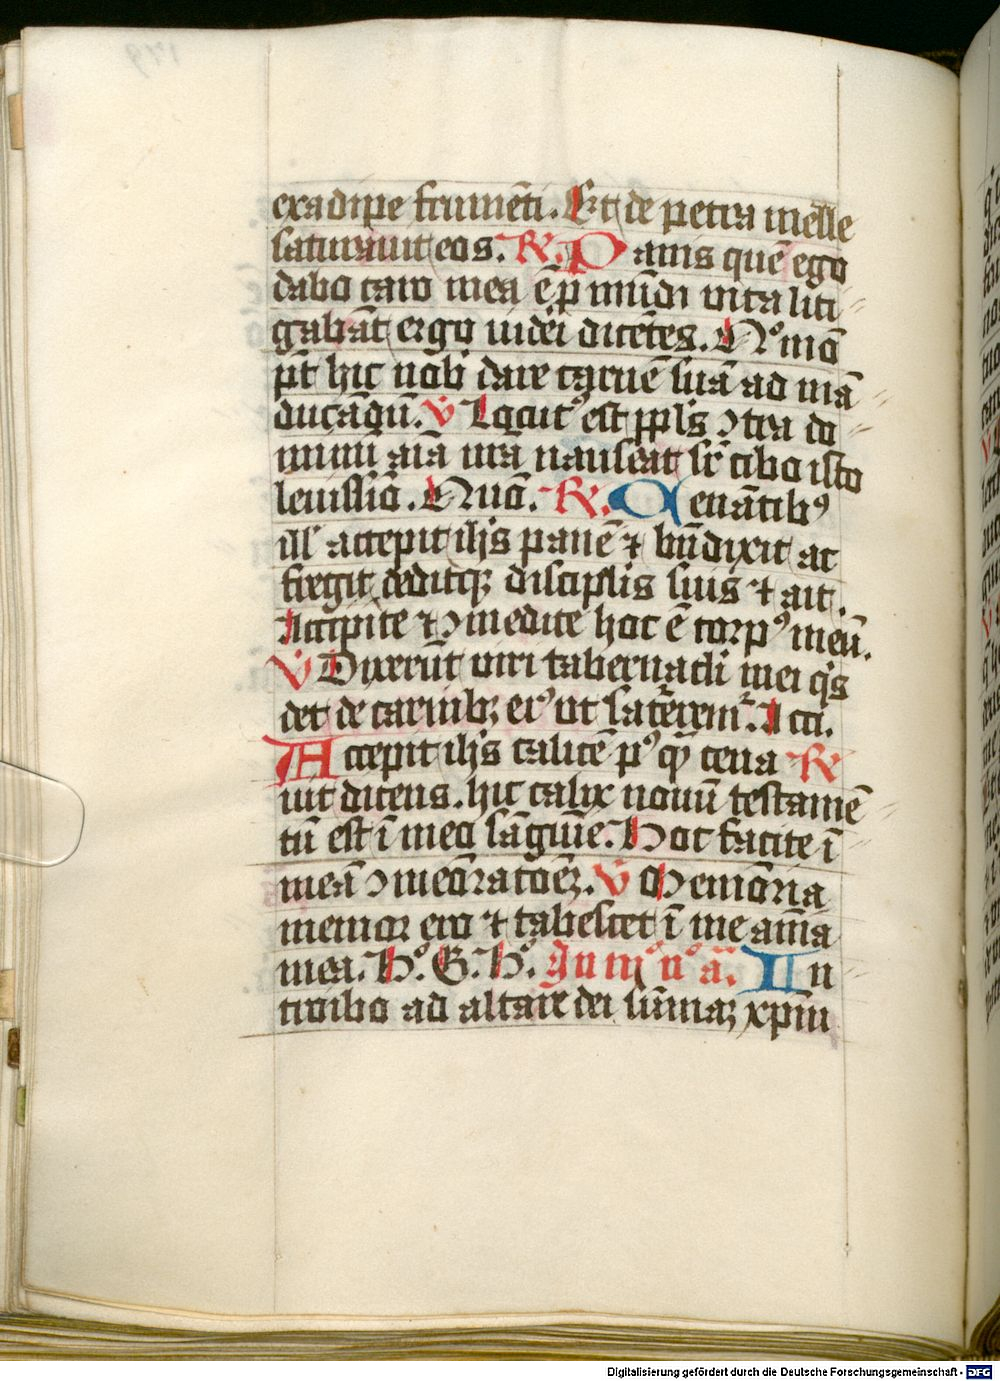 ex adipe frumēti. Et de petra melle
saturauit eos. R. Panis quē ego
dabo caro mea ē p mūdi vita liti
gabāt ergo iudei dicētes. Nº mō
pt hic nob̄ dare carnē suā ad mā
ducādū. V Locutꝰ est ppls ꝯtra do
minū aīa nra nauseat sr cibo isto
leuissīo. Nuō. R. Cenātibꝰ
ill' accepit ihs panē ⁊ bn̄dixit ac
fregit deditqꝫ disciplis suis ⁊ ait.
Accipite ⁊ ꝯmedite hoc ē corpꝰ meū.
V Dixerūt viri tabernacli mei qis
det de carnibꝫ eiꝰ ut saturemr. Acci.
Accepit ihs calicē pꝰ qꝫ cena R
uit dicens. hic calix nouū testamē
tū est ī meo sāguīe. Hoc facite ī
meā ꝯmemoratoēꝫ. V Memoria
memor ero ⁊ tabescet ī me aīma
mea. Hº. G. Hº. In mº nº aª. In
troibo ad altare dei sumaꝫ xpm
Digitalisierung gefördert durch die Deutsche Forschungsgemeinschaft - DFG